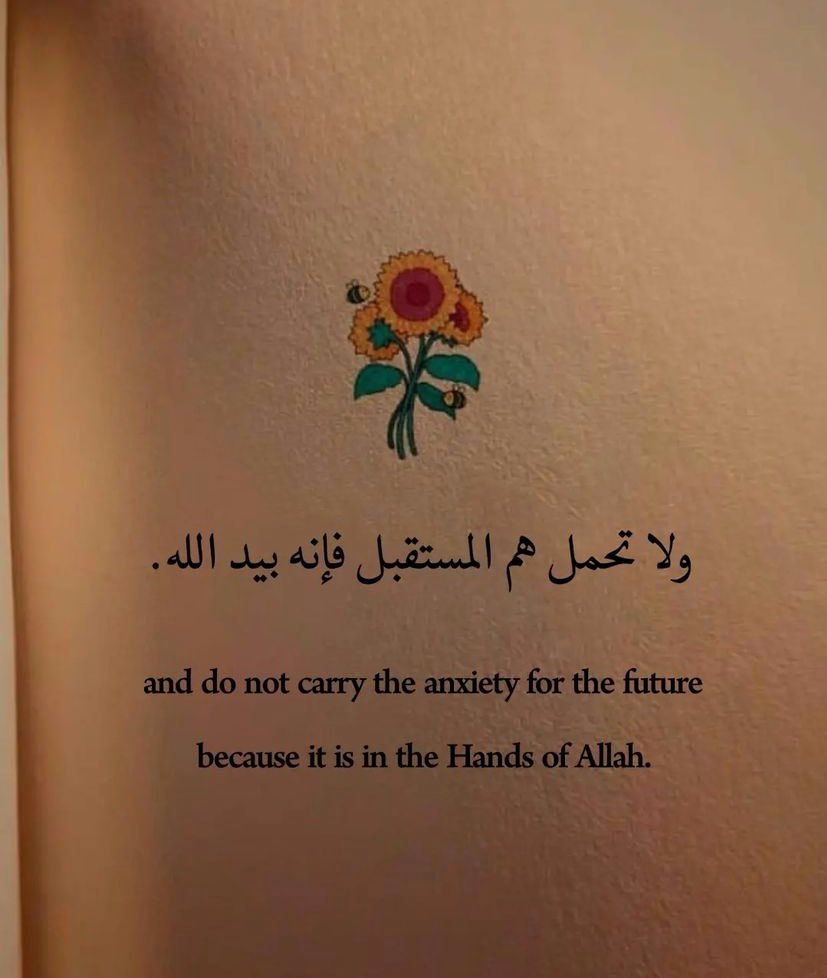 ولا تحمل هم المستقبل فإنه بيد الله.
and do not carry the anxiety for the future
because it is in the Hands of Allah.